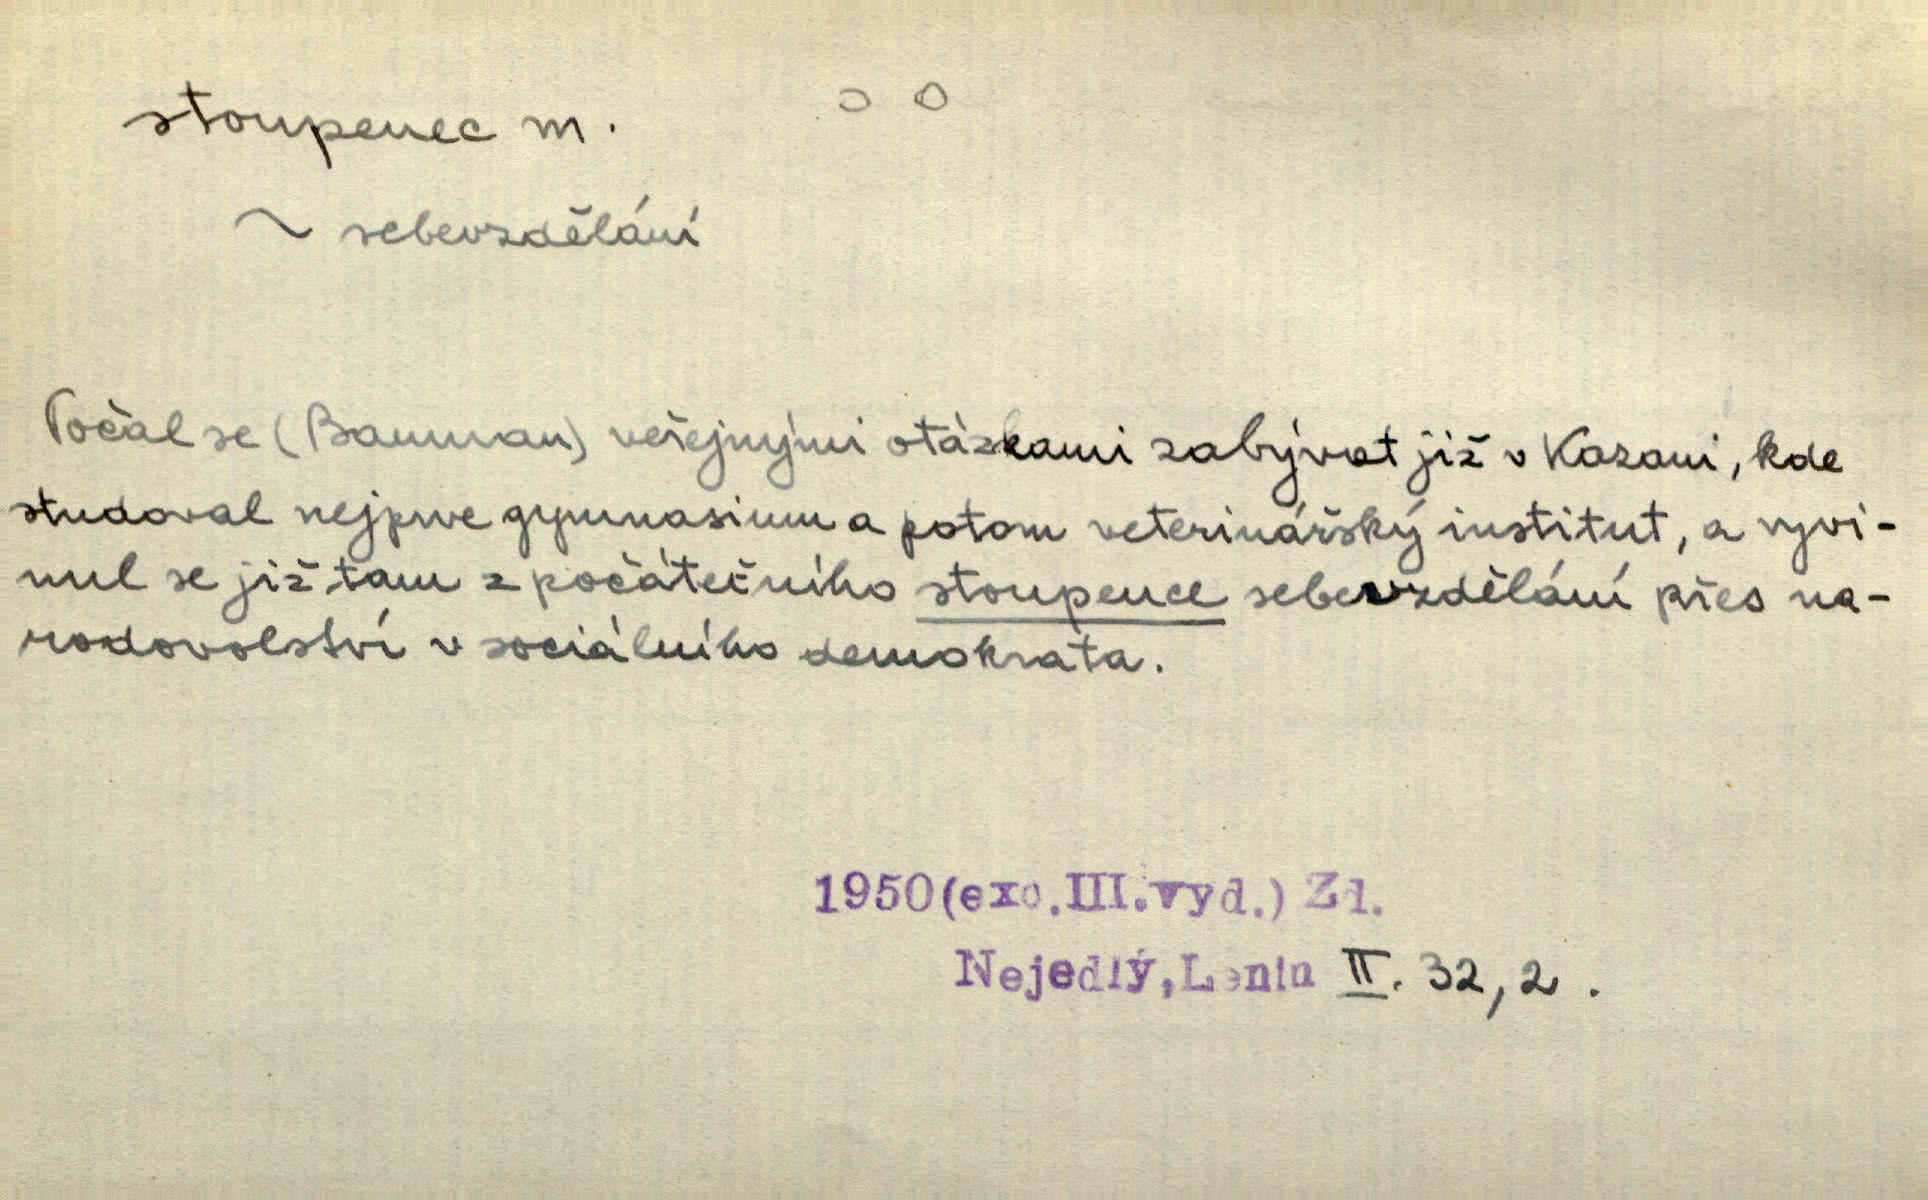 stoupenec m.
~ sebevzdělání
Počal se (Bauman) veřejnými otázkami zabývat již v Kazani, kde
studoval nejprve gymnasium a potom veterinářský institut, a vyvi-
nul se již tam z počátečního stoupence sebevzdělání přes na-
rodovolství v sociálního demokrata.
1950(exc.III.vyd.) Zd.
Nejedlý,Lenin II. 32,2.